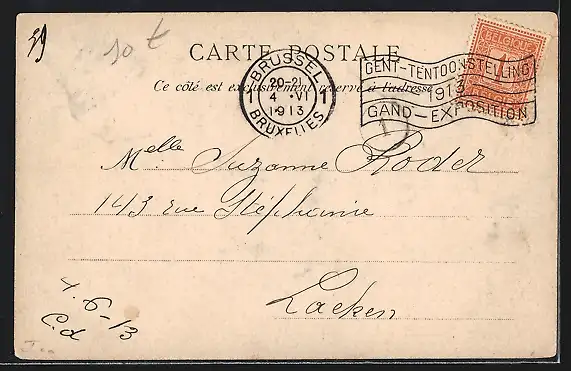 39
10 t
CARTE POSTALE
Ce côté est exclusivement réservé à l'adresse
BRUSSEL
20-21
1 4 ·VI 1
1913
BRUXELLES
GENT-TENTOONSTELLING
1913
GAND-EXPOSITION
BELGIQUE
1
Melle Suzanne Roder
143 rue Stéphanie
Laeken
4.6-13
C.d